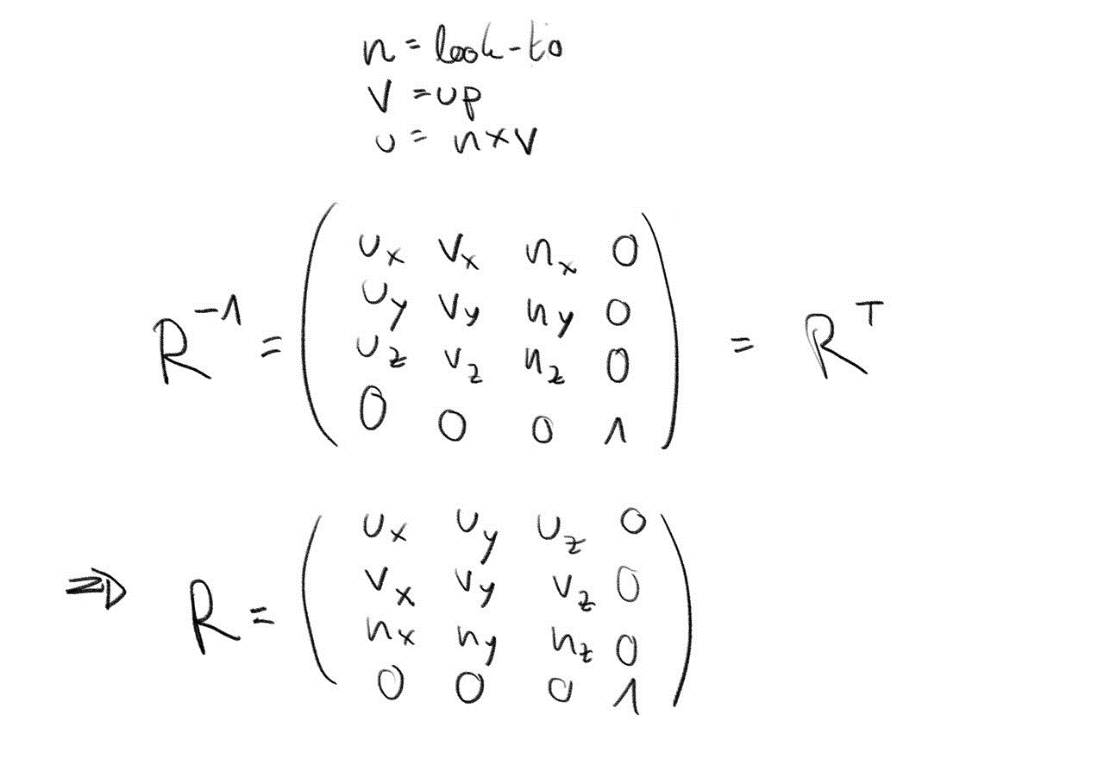 n = look-to
v = up
u = n×v
R⁻¹ = ( uₓ vₓ nₓ 0
u_y v_y n_y 0
u_z v_z n_z 0
0 0 0 1 ) = Rᵀ
⇒ R = ( uₓ u_y u_z 0
vₓ v_y v_z 0
nₓ n_y n_z 0
0 0 0 1 )